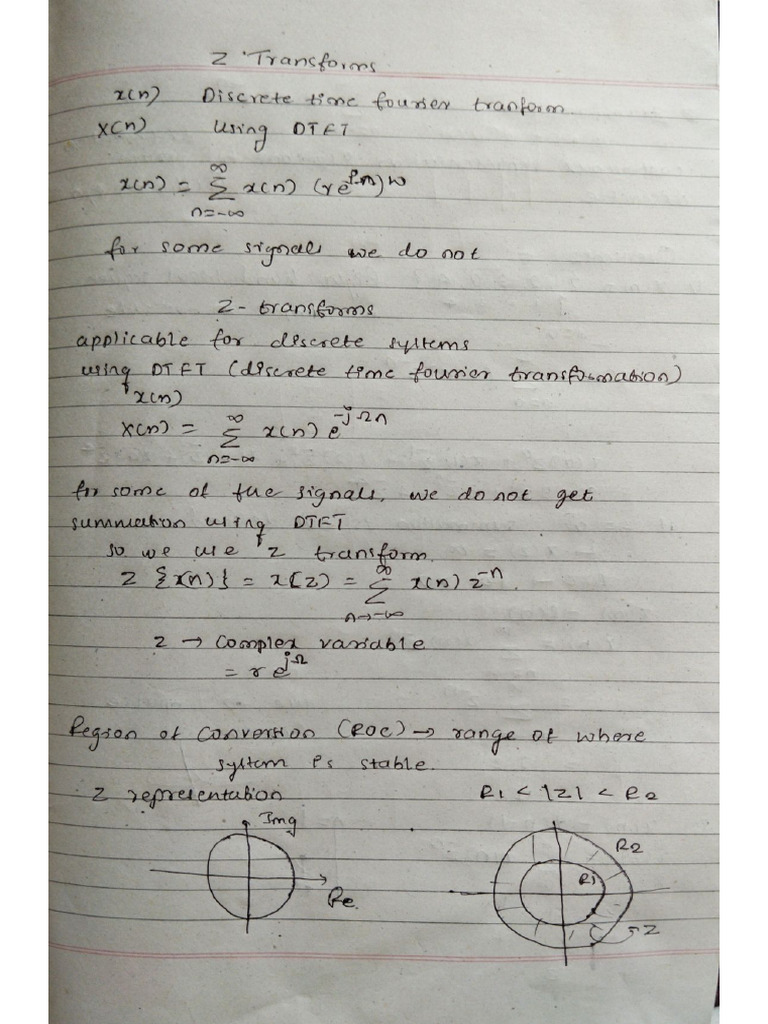 Z Transforms
x(n) Discrete time fourier tranform
X(n) Using DTFT
x(n) = ∞ Σ n=-∞ x(n) (re
for some signals we do not
Z- transforms
applicable for discrete systems
using DTFT (discrete time fourier transformation)
x(n)
X(n) = ∞ Σ n=-∞ x(n) e^-jΩn
for some of the signals, we do not get
summation using DTFT
so we use z transform.
Z {x(n)} = x(z) = ∞ Σ n→-∞ x(n) z^-n.
z → complex variable
= r e^jΩ
Region of convertion (ROC) → range of where
system is stable.
Z representation R1 < |z| < R2
Img
Re.
R2
R1
Z